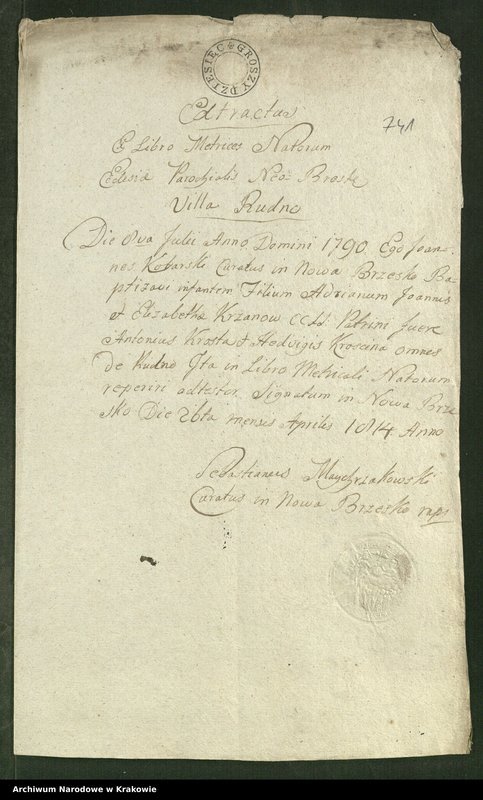 DZIESIĘĆ GROSZY
Extractus
741
Ex Libro Metrices Natorum
Eclesiæ Parochialis Neo: Breske
Villa Rudno
Die 8va Julii Anno Domini 1790 Ego Joan-
nes Kobarski Curatus in Nowa Brzesko Ba-
ptizavi infantem Filium Adrianum Joannis
et Elizabetha Krzanow CCLL. Patrini fuere
Antonius Krosta et Hedvigis Kroscina omnes
de Rudno Ita in Libro Metricali Natorum
reperiri adtestor Signatum in Nowa Brze
sko Die 26ta mensis Aprilis 1814 Anno
Sebastianus Maychrzakowski
Curatus in Nowa Brzesko mpr
Archiwum Narodowe w Krakowie